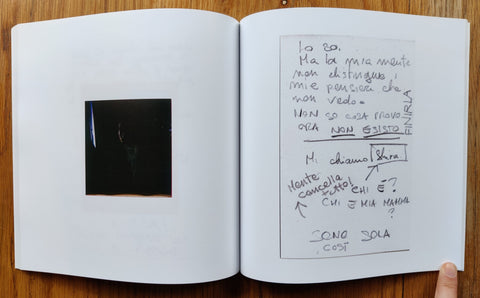 Lo so.
Ma la mia mente
non distingue i
miei pensieri che
non vedo.
NON SO COSA PROVO
ORA NON ESISTO
FINIRLA
Mi chiamo Shira
Mente
cancella
tutto!
CHI È?
CHI È MIA MAMMA
?
SONO SOLA
COSÌ